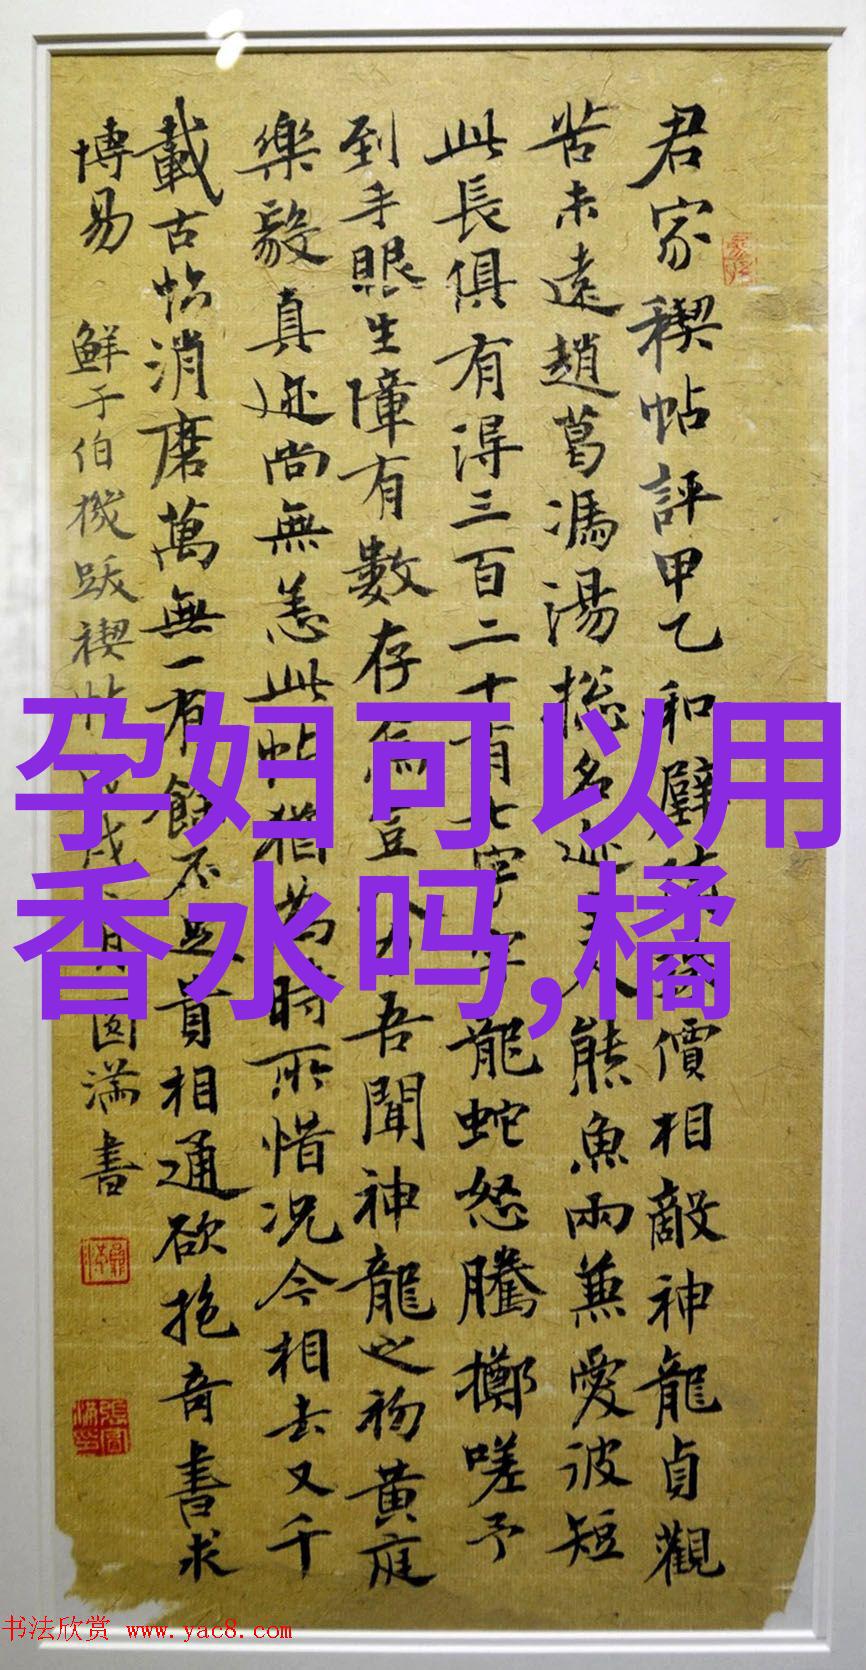 孕妇可以用
香水吗,橘
君家稧帖評甲乙和璧價相敵神龍貞觀
苦未遠趙葛馮湯揔名迹人熊魚兩兼愛彼短
此長俱有得三百二十有七字字龍蛇怒騰擲嗟予
到手眼生障有數存焉豈人力吾聞神龍之初黄庭
樂毅真迹尚無恙此帖猶為時所惜況今相去又千
載古帖消磨萬無一有餘不足貴相通欲抱奇書求
博易 鮮于伯機跋禊帖 月圓滿書
书法欣赏 www.yac8.com